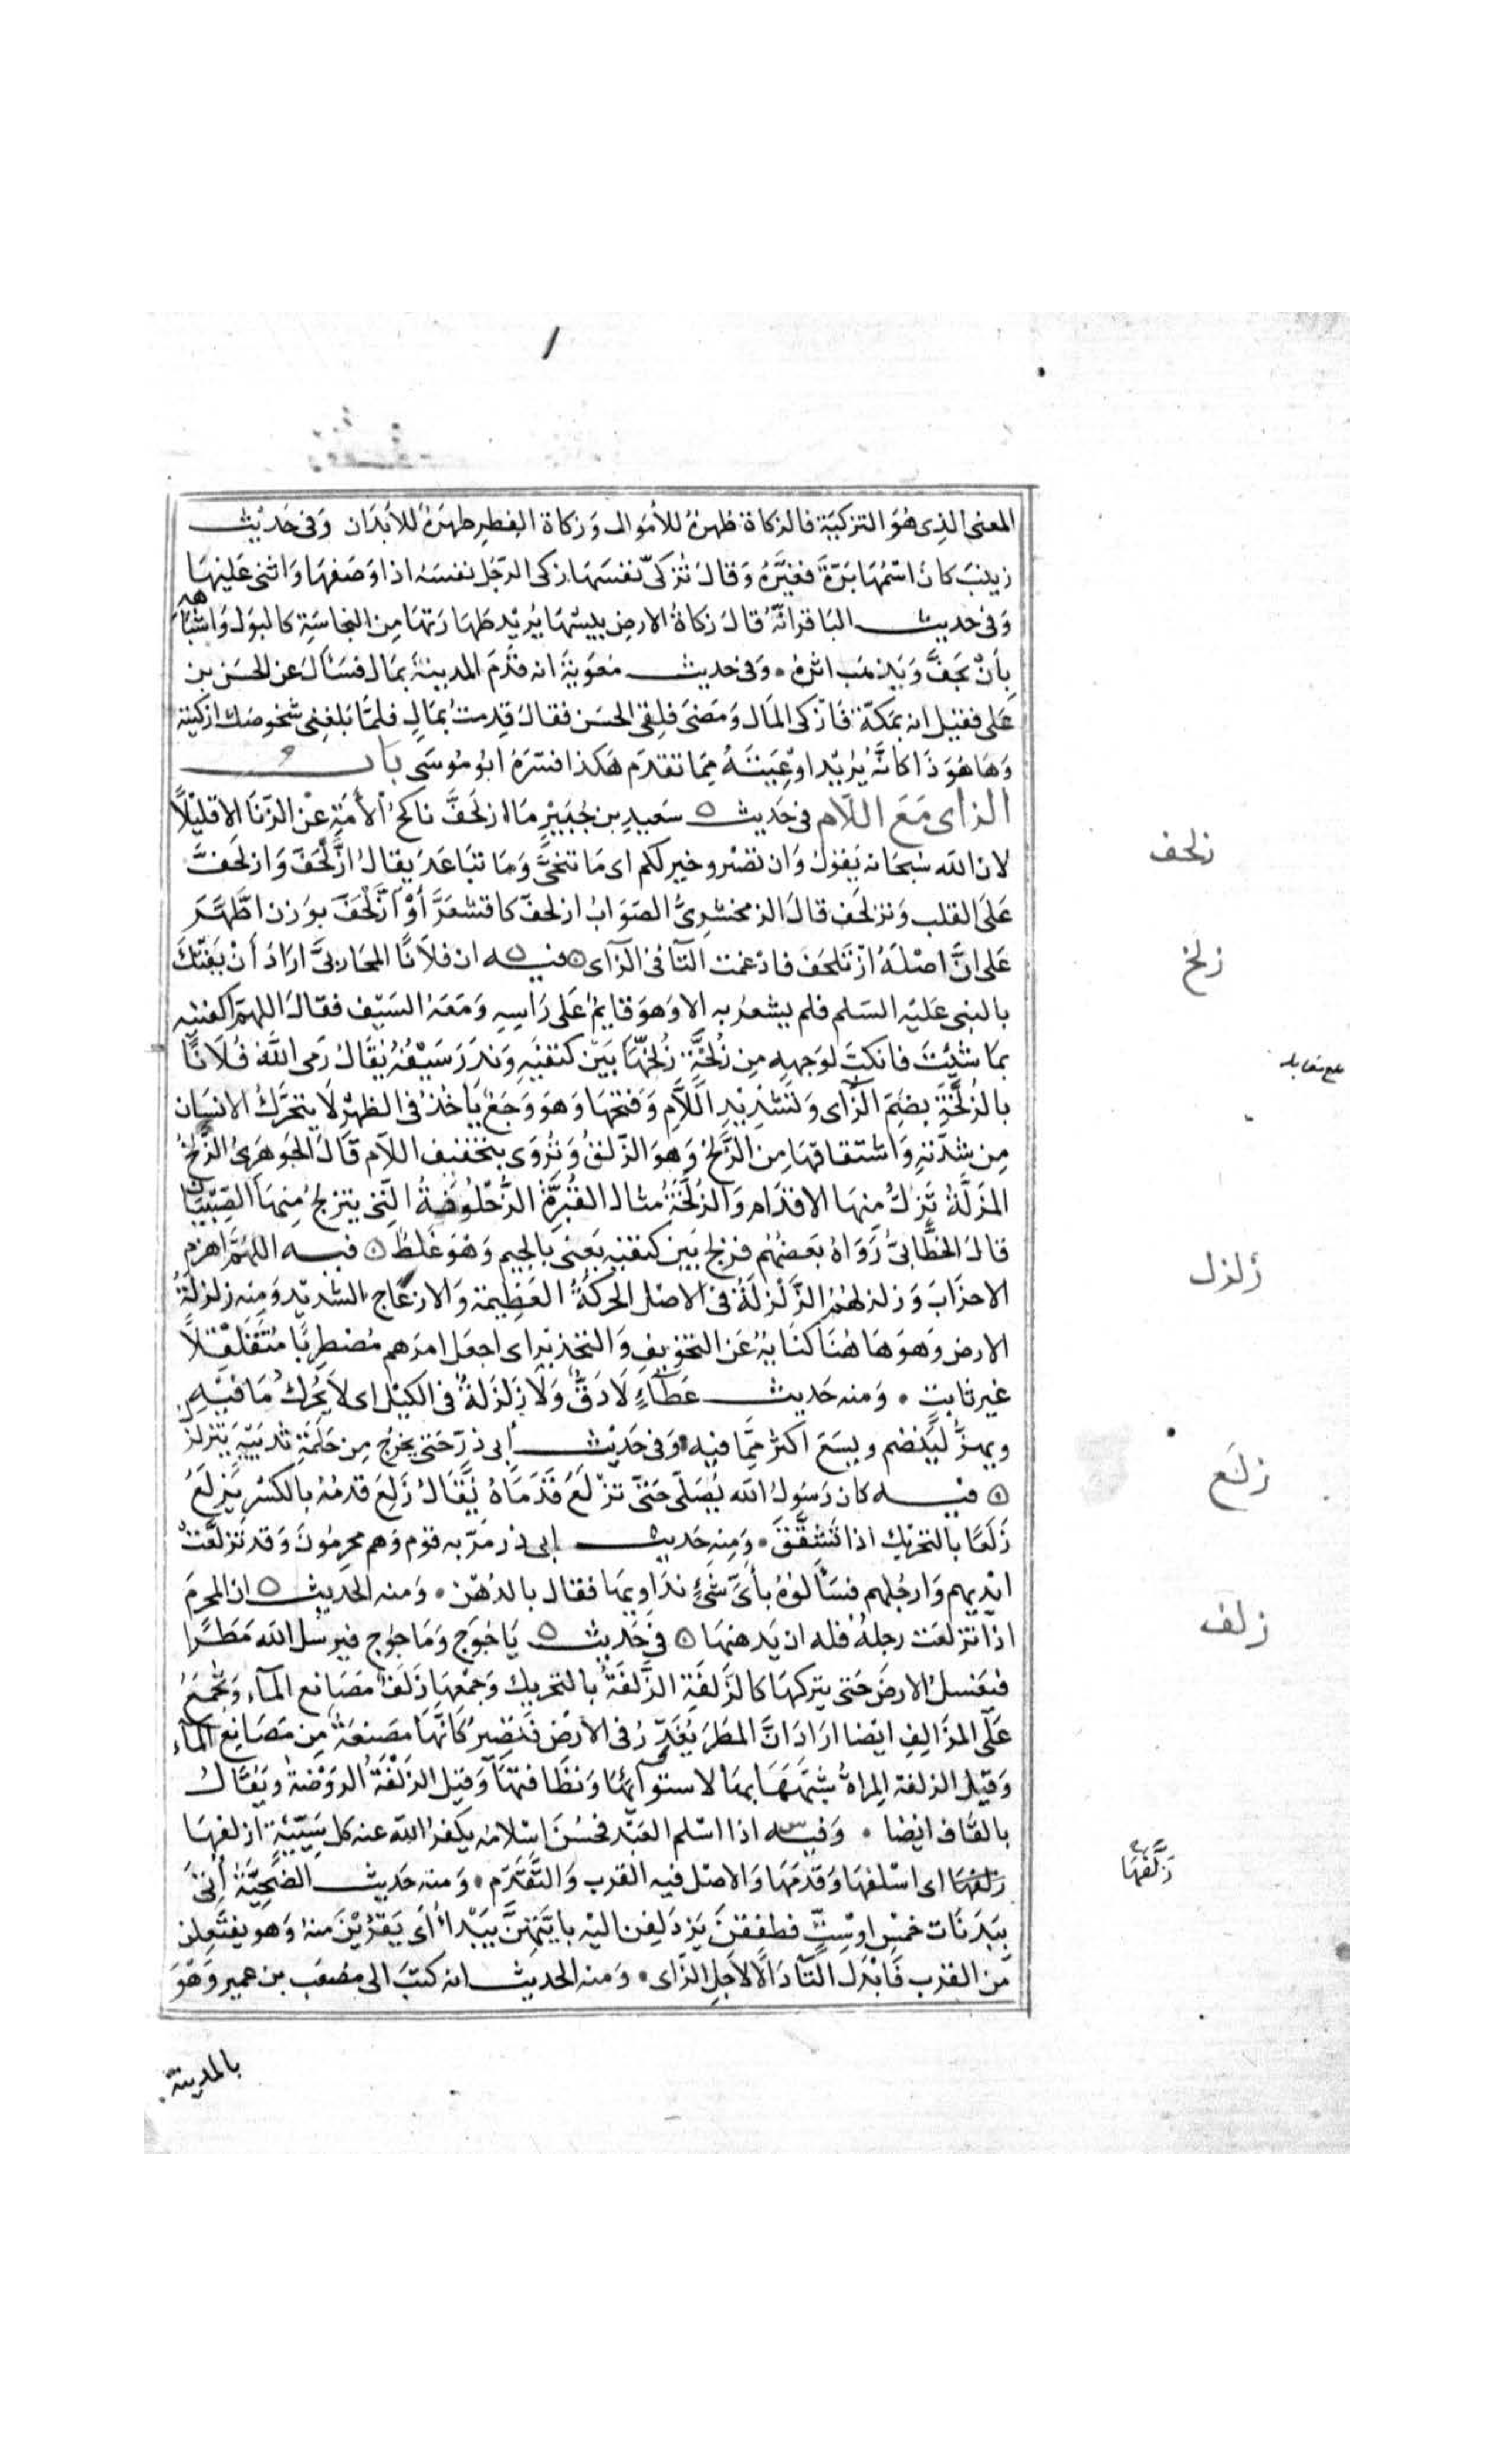 المعنى الذى هُوَ التزكيَة فالزكاة طُهرة للأموال وَزكاة الفطرِ طهرَة للأبدَان وَفى حَديث
زينبَ كانَ اسْمُهَا بَرَّةَ فغيَّرَهُ وَقالَ تُزكىّ نفسَهَا زكى الرّجُل نفسَهُ اذا وَصَفهَا وَاثنى عَليهَا
وَفى حديث البَاقر انّهُ قالَ زكاةُ الارضِ يبسُهَا يُريْد طهَارَتهَا مِن النجاسَةِ كالبَول وَاشبَاهه
بِأنْ يجَفَّ وَيَذهَب اثرهُ • وَفى حديث معَوية انه قَدَم المدينةَ بمَال فسَألَ عن الحسَن بن
عَلى فقيل انه بمَكّة فَازّكى المَال وَمَضىَ فلِقى الحسَن فقالَ قدِمتُ بمَالٍ فلمَّا بَلغِنى شخوصَك ازكيته
وَهَا هُوَ ذَا كانَّهُ يُريْد اوْعَيتهُ مِمَا تقدَم هَكذا فسّرَهُ ابُو مُوسَى بَاب
الزاى مَعَ اللّام فى حَديث ٥ سَعيدِ بن جُبَيْرٍ مَا ازلحَفَّ ناكحُ الأمَةِ عنْ الزّنَا الا قليْلاً
لان الله سُبحَانه يَقولُ وَان تصْبروا خير لكم اى مَا تنحّىَّ وَمَا تبَاعَدَ يقالُ ازْلَحَفَ وَازلحَفَّ
عَلى القلب وَتزلحَف قالَ الزمخشرِىُّ الصَوَابُ ازلحفّ كاقشعَرَّ أوْ ازّلْحَفَ بوَزن اطّهَّرَ
عَلى انَّ اصْلهُ ازْتَلحَفَ فادْغمت التآ فى الزآى ٥ فيه ان فلاَنًا المحَاربىَّ ارَادَ أنْ يَفتكَ
بالنبى عَليْه السَلم فلم يشعُر به الا وَهوَ قايمٌ عَلى رَاسِهِ وَمَعَهُ السَيْف فقالَ اللهمّ اكفنيه
بمَا شئتَ فانكبّ لوَجهِهِ مِن زُلخَّةٍ زُلخّهَا بَيْن كتفيَهِ وَندَرَ سَيْفُهُ يُقَالُ رَمى اللّهُ فُلاَنًا
بالزُلخَّة بضمّ الزّاى وَتشْديْدِ اللاَّمِ وَفتحهَا وَهوَ وَجَعٌ يَأخذ فى الظهرْ لاَ يتحَرّكُ الانسَان
مِن شِدّتهِ وَاشتقاقهَا مِن الزَّلخْ وَهوَ الزّلقُ وَتُرْوَى بتخفيف اللآم قالَ الجَوهَرِىُّ الزّلخُ
المزَلَّةُ تَزِلّ مِنهَا الاقدَام وَالزُلّخَةُ مثال القُبّرَةَّ الزُّحْلُوقة الّتى يتزلجُ مِنهَا الصّبيَان
قالَ الخطّابىُّ رَوَاهُ بَعضُهُم فزلج بَين كتفيه يَعنى بالجيم وَهوَ غَلطٌ ٥ فيه اللهُمّ اهزم
الاحزَابَ وَزلزلهُمْ الزّلزلةُ فى الاصْل الحركةُ العَظيمة وَالازعَاج الشديْد وَمِنه زلزلةُ
الارض وَهوَ هَا هُنا كنَايةٌ عَن التخوْيفِ وَالتحذيْر اى اجعَل امرَهم مُضطرِبًا مُتقَلقلاً
غير ثابتٍ • وَمنه حَديث عَطآءٍ لاَ دَقَّ وَلاَ زلزلةٌ فى الكيْل اى لاَ يحُرك مَا فيْهِ
ويهزُّ ليَنضم ويسَعَ اكثر مِمَّا فيه وَفى حَديْث أبى ذرّ حَتى يخرُج مِن حَلمَةِ ثديَيهِ يَتزلزلُ
٥ فيه كان رَسُولُ الله يُصَلّى حَتى تزلَعَ قَدَمَاهُ يُقَالُ زَلعَ قدمُهُ بالكسْر يَزلعُ
زَلَعًا بالتحرْيكِ اذا تشقَّق • وَمِنه حَديث ابى ذر مَرّ به قوْم وَهم محرِمُونَ وَقد تزلّعَتْ
ايْديهم وَارجُلهم فسَألوُهُ بأىّ شَئٍ نُدَاوِيهَا فقال بالدُهْن • وَمنه الحَديث ٥ ان المحرمَ
اذا تزلعَت رجلهُ فلهُ ان يَدهنهَا ٥ فى حَديث ٥ يَاجُوجَ وَمَاجوُج فيرسل الله مَطَرًا
فيغسل الارضَ حَتى يتركهَا كالزَلَفَةِ الزَّلفةُ بالتحريك وَجمْعهَا زَلَفٌ مَصَانع المآء وَتجمَعُ
عَلى المزَالِفِ ايْضا ارَادَ انَّ المطَرَ يُغَدّر فى الارْض فتصِيرُ كَانَّهَا مَصنعَةٌ مِن مَصَانِع المآء
وَقيْل الزلفة المِراةُ شبّهَهَا بهَا لاستوآئهَا وَنظَافتهَا وَقيل الزلفة الروَضة وَيقالُ
بالقَاف ايْضا • وَفيه اذا اسْلم العَبْد فحسُنَ اسْلامُه يكفّرُ الله عنه كل سَيّئةٍ ازلفهَا
زلفهَا اى اسْلفهَا وَقدّمَهَا وَالاصْل فيه القرب وَالتَّقَدّم • وَمنه حَديث الضَحيَّة أتىَ
ببَدَنَات خمْسٍ اوْ سِتٍّ فطفِقنَ يَزدَلِفن اليْه بايَّتهنَّ يَبْدأُ أى يَقرُبْنَ منهُ وَهوَ يفتَعِلن
مّن القرْب فَابْدلَ التّآ دَالاً لاَجلِ الزّاى • وَمنه الحديث انه كتَبَ الى مصْعَب بن عمير وَهْوَ
بالمدينة
زلحف
زلخ
بلغ مقابله
زلزل
زلع
زلف
زَلَّفهَا